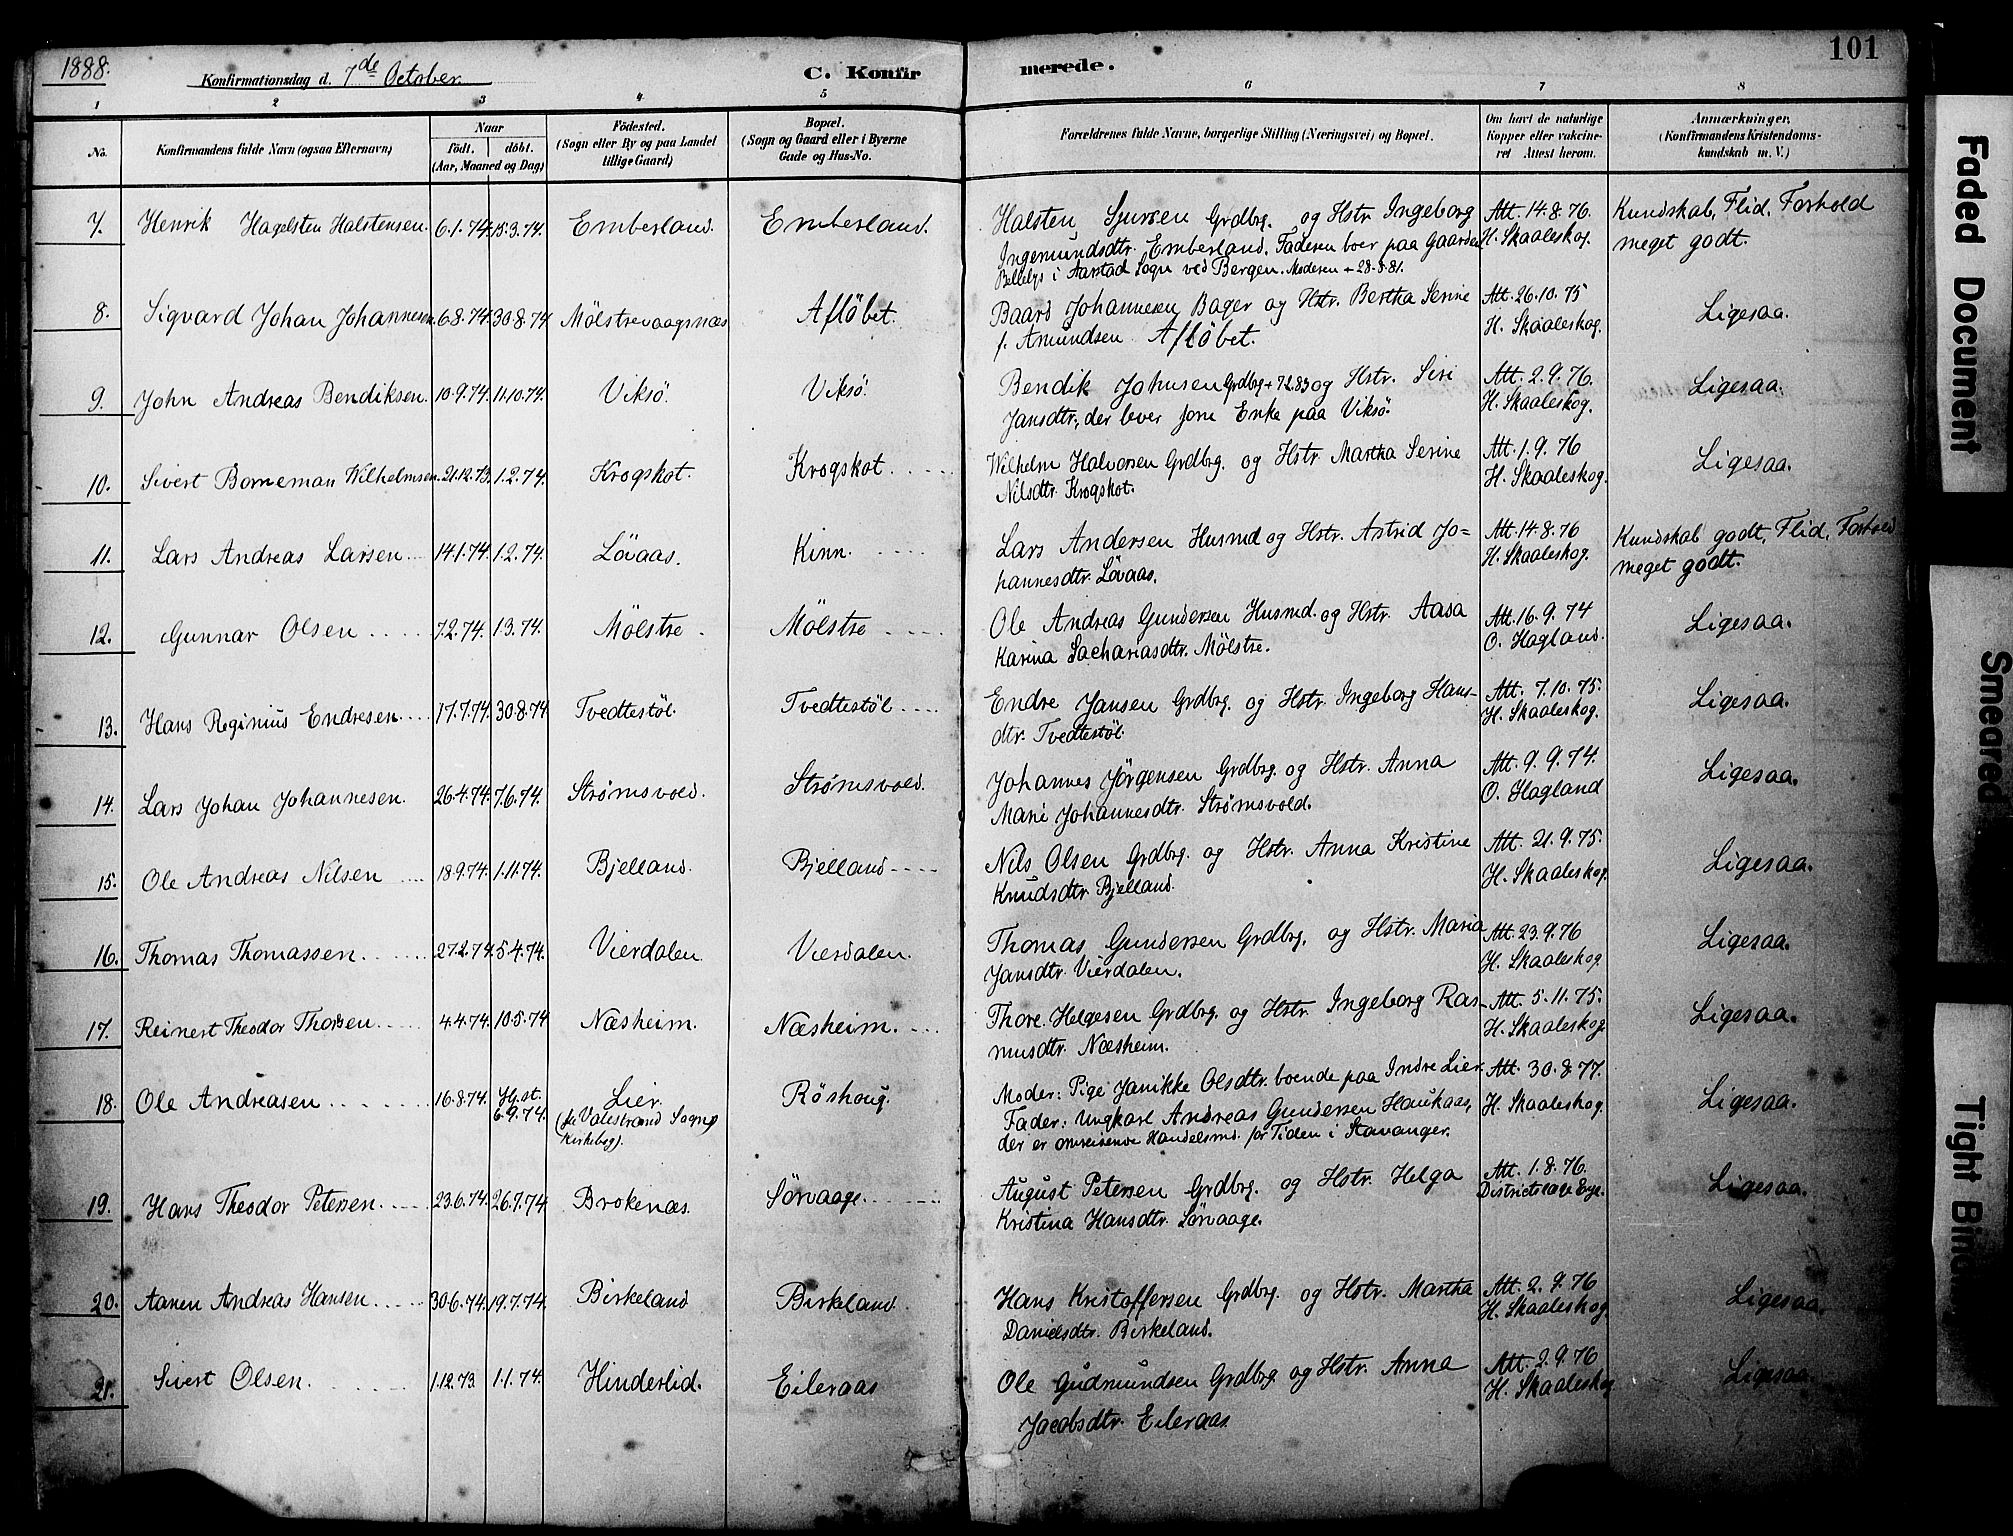 1888.
Konfirmationsdag d. 7de October.
C. Konfirmerede.
101
1 2 3 4 5 6 7 8
No.
Konfirmandens fulde Navn (ogsaa Efternavn)
Naar
födt. döbt.
(Aar, Maaned og Dag)
Födested.
(Sogn eller By og paa Landet
tillige Gaard)
Bopæl.
(Sogn og Gaard eller i Byerne
Gade og Hus-No.
Forældrenes fulde Navne, borgerlige Stilling (Næringsvei) og Bopæl.
Om havt de naturlige
Kopper eller vakcine-
ret Attest herom.
Anmærkninger,
(Konfirmandens Kristendoms-
kundskab m. V.)
7. Henrik Hagelsten Halstensen. 6.1.74. 15.3.74. Emberland. Emberland. Halsten Sjursen Grdbrg. og Hstr. Ingeborg Att. 14.8.76. Kundskab, Flid, Forhold
Ingemundsdtr. Emberland. Faderen boer paa Gaarden H. Skaaleskog. meget godt.
i Aarstad Sogn ved Bergen. Moderen + 28.8.81.
8. Sigvard Johan Johannesen 6.8.74. 30.8.74 Mölstrevaagsnæs Aflöbet. Baard Johannesen Bager og Hstr. Bertha Serine Att. 26.10.75 Ligesaa.
f. Amundsen Aflöbet. H. Skaaleskog.
9. John Andreas Bendiksen. 10.9.74. 11.10.74. Viksö. Viksö. Bendik Johnsen Grdbrg + 7.2.83 og Hstr. Siri Att. 2.9.76. Ligesaa.
Jansdtr., der lever som Enke paa Viksö. H. Skaaleskog.
10. Sivert Borneman Wilhelmsen. 21.12.73. 1.2.74. Krogskot. Krogskot. Wilhelm Halvorsen Grdbrg. og Hstr. Martha Serine Att. 1.9.76 Ligesaa.
Nilsdtr. Krogskot. H. Skaaleskog.
11. Lars Andreas Larsen 14.1.74. 1.2.74. Lövaas. Kinn. Lars Andersen Husmd og Hstr. Astrid Jo= Att. 14.8.76 Kundskab godt, Flid, Forhold
hannesdtr. Lövaas. H. Skaaleskog. meget godt.
12. Gunnar Olsen 7.2.74. 1.3.74. Mölstre. Mölstre Ole Andreas Gundersen Husmd. og Hstr. Aasa Att. 16.9.74 Ligesaa.
Karina Sachariasdtr. Mölstre. O. Hagland.
13. Hans Reginius Endresen 17.7.74. 30.8.74 Tvedtestöl. Tvedtestöl Endre Jansen Grdbrg. og Hstr. Ingeborg Hans- Att. 7.10.75. Ligesaa.
dtr. Tvedtestöl. H. Skaaleskog.
14. Lars Johan Johannesen. 26.4.74. 7.6.74. Strømsvold. Strømsvold. Johannes Jörgensen Grdbrg. og Hstr. Anna Att. 9.9.74. Ligesaa.
Marie Johannesdtr. Strømsvold. O. Hagland
15. Ole Andreas Nilsen 18.9.74. 1.11.74. Bjelland. Bjelland Nils Olsen Grdbrg. og Hstr. Anna Kristine Att. 21.9.75. Ligesaa.
Knudsdtr. Bjelland. H. Skaaleskog
16. Thomas Thomassen. 27.2.74. 5.4.74. Vierdalen Vierdalen. Thomas Gundersen Grdbrg. og Hstr. Maria Att. 23.9.76 Ligesaa.
Jansdtr. Vierdalen. H. Skaaleskog.
17. Reinert Theodor Thorsen. 4.4.74. 10.5.74 Næsheim. Næsheim. Thore Helgesen Grdbrg. og Hstr. Ingeborg Ras- Att. 5.11.75. Ligesaa.
musdtr. Næsheim. H. Skaaleskog
18. Ole Andreasen 16.8.74. Hj.st. 6.9.74. Lier. Röshoug. Moder: Pige Janikke Olsdtr. boende paa Indre Lier. Att. 30.8.77. Ligesaa.
Valestrand Sogns Fader: Ungkarl Andreas Gundersen Haukaas, H. Skaaleskog.
Kirkebog). der er omreisende Handelsmd. for Tiden i Stavanger.
19. Hans Theodor Petersen. 23.6.74. 26.7.74. Brokenæs. Sörvaage. August Petersen Grdbrg. og Hstr. Helga Att. 1.8.76. Ligesaa.
Kristina Hansdtr. Sörvaage.
20. Aanen Andreas Hansen 30.6.74. 19.7.74. Birkeland Birkeland. Hans Kristoffersen Grdbrg. og Hstr. Martha Att. 2.9.76 Ligesaa.
Danielsdtr. Birkeland. H. Skaaleskog
21. Sivert Olsen. 1.12.73. 1.1.74. Hinderlid. Eileraas Ole Gudmundsen Grdbrg. og Hstr. Anna Att. 2.9.76 Ligesaa.
Jacobsdtr. Eileraas. H. Skaaleskog
Faded Document
Smeared
Tight Bin